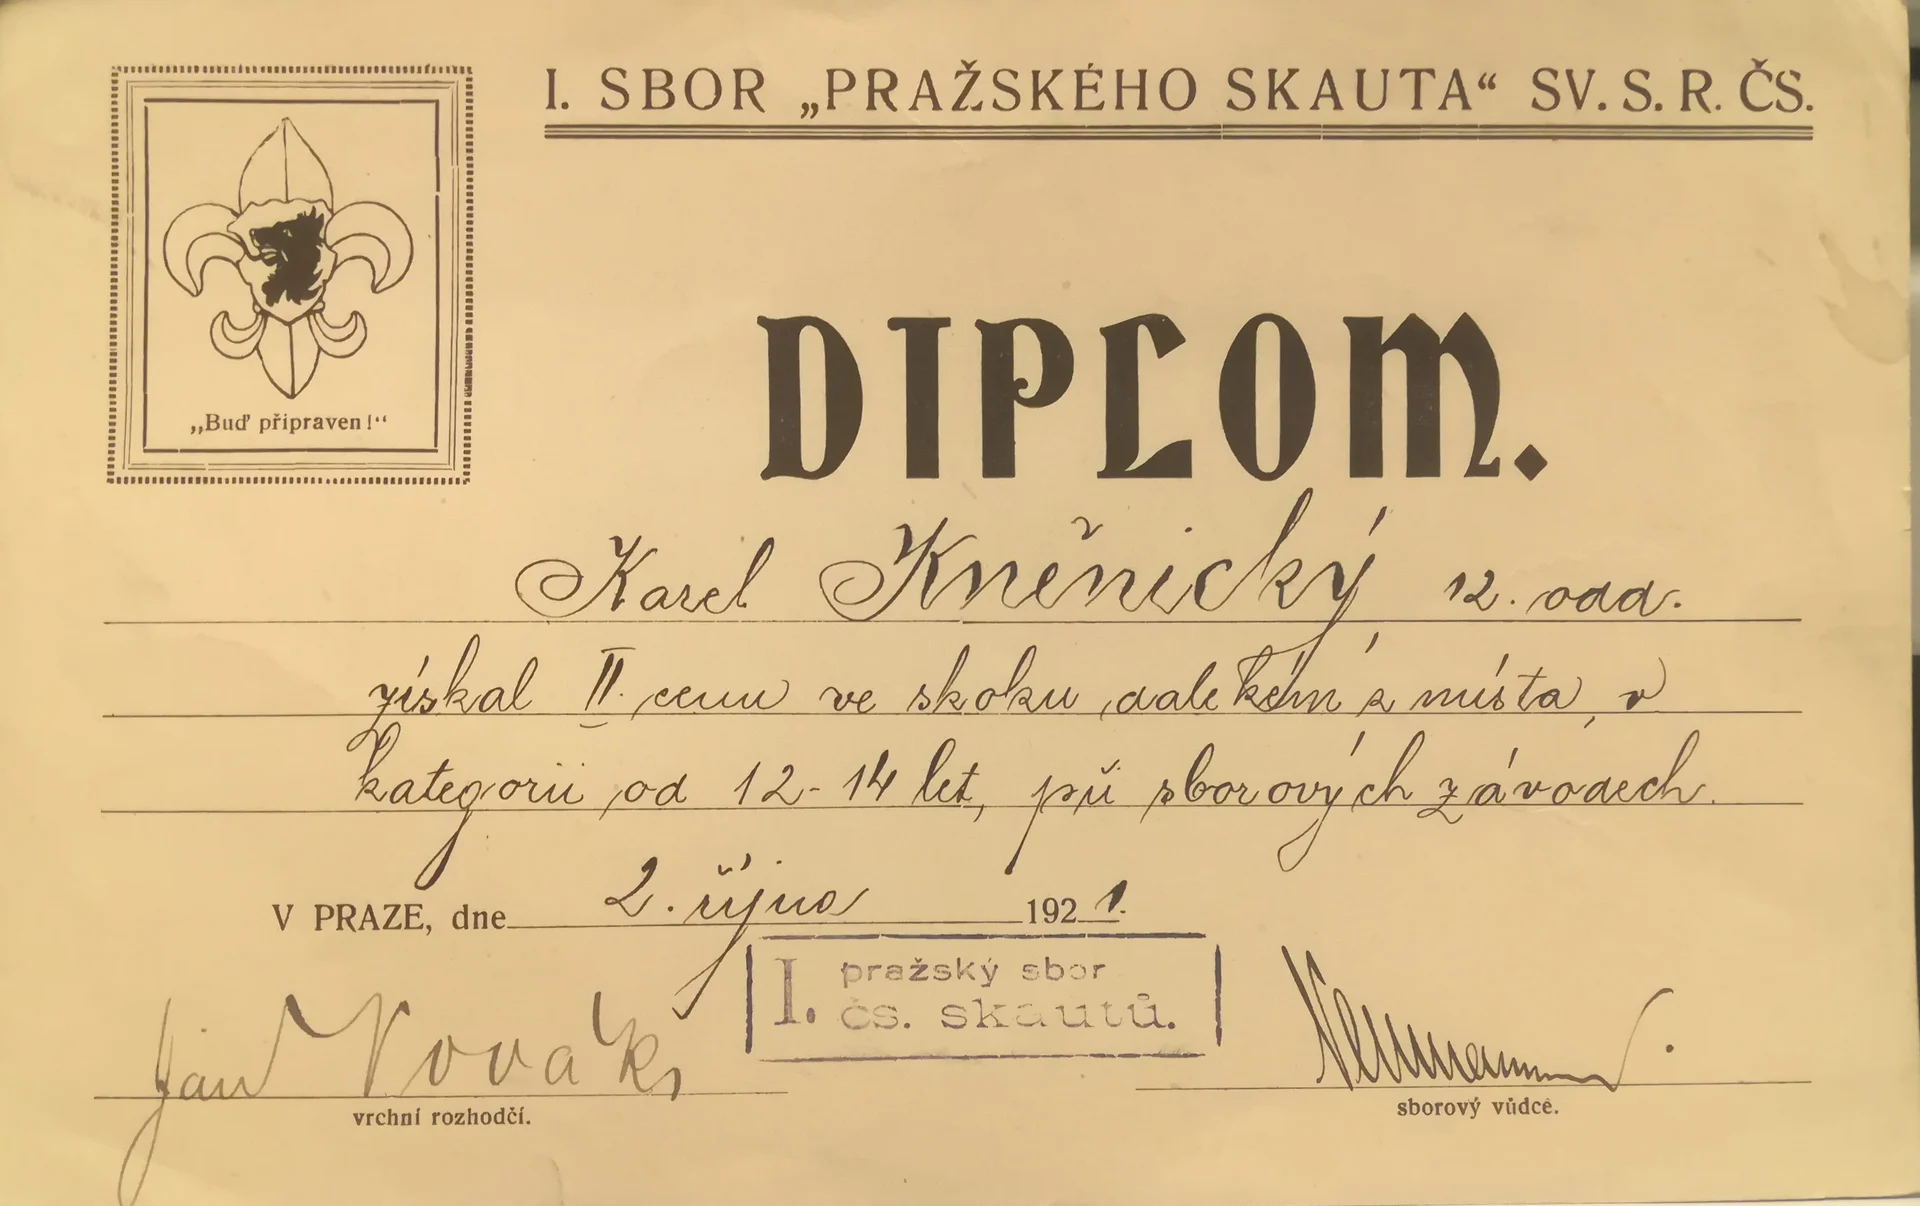 I. SBOR „PRAŽSKÉHO SKAUTA“ SV. S. R. ČS.
„Buď připraven!“
DIPLOM.
Karel Kněnický 12. odd.
získal II. cenu ve skoku dalekém z místa, v
kategorii od 12-14 let, při sborových závodech.
V PRAZE, dne 2. října 1921.
I. pražský sbor
čs. skautů.
Jan Novák
Neumann.
vrchní rozhodčí.
sborový vůdce.